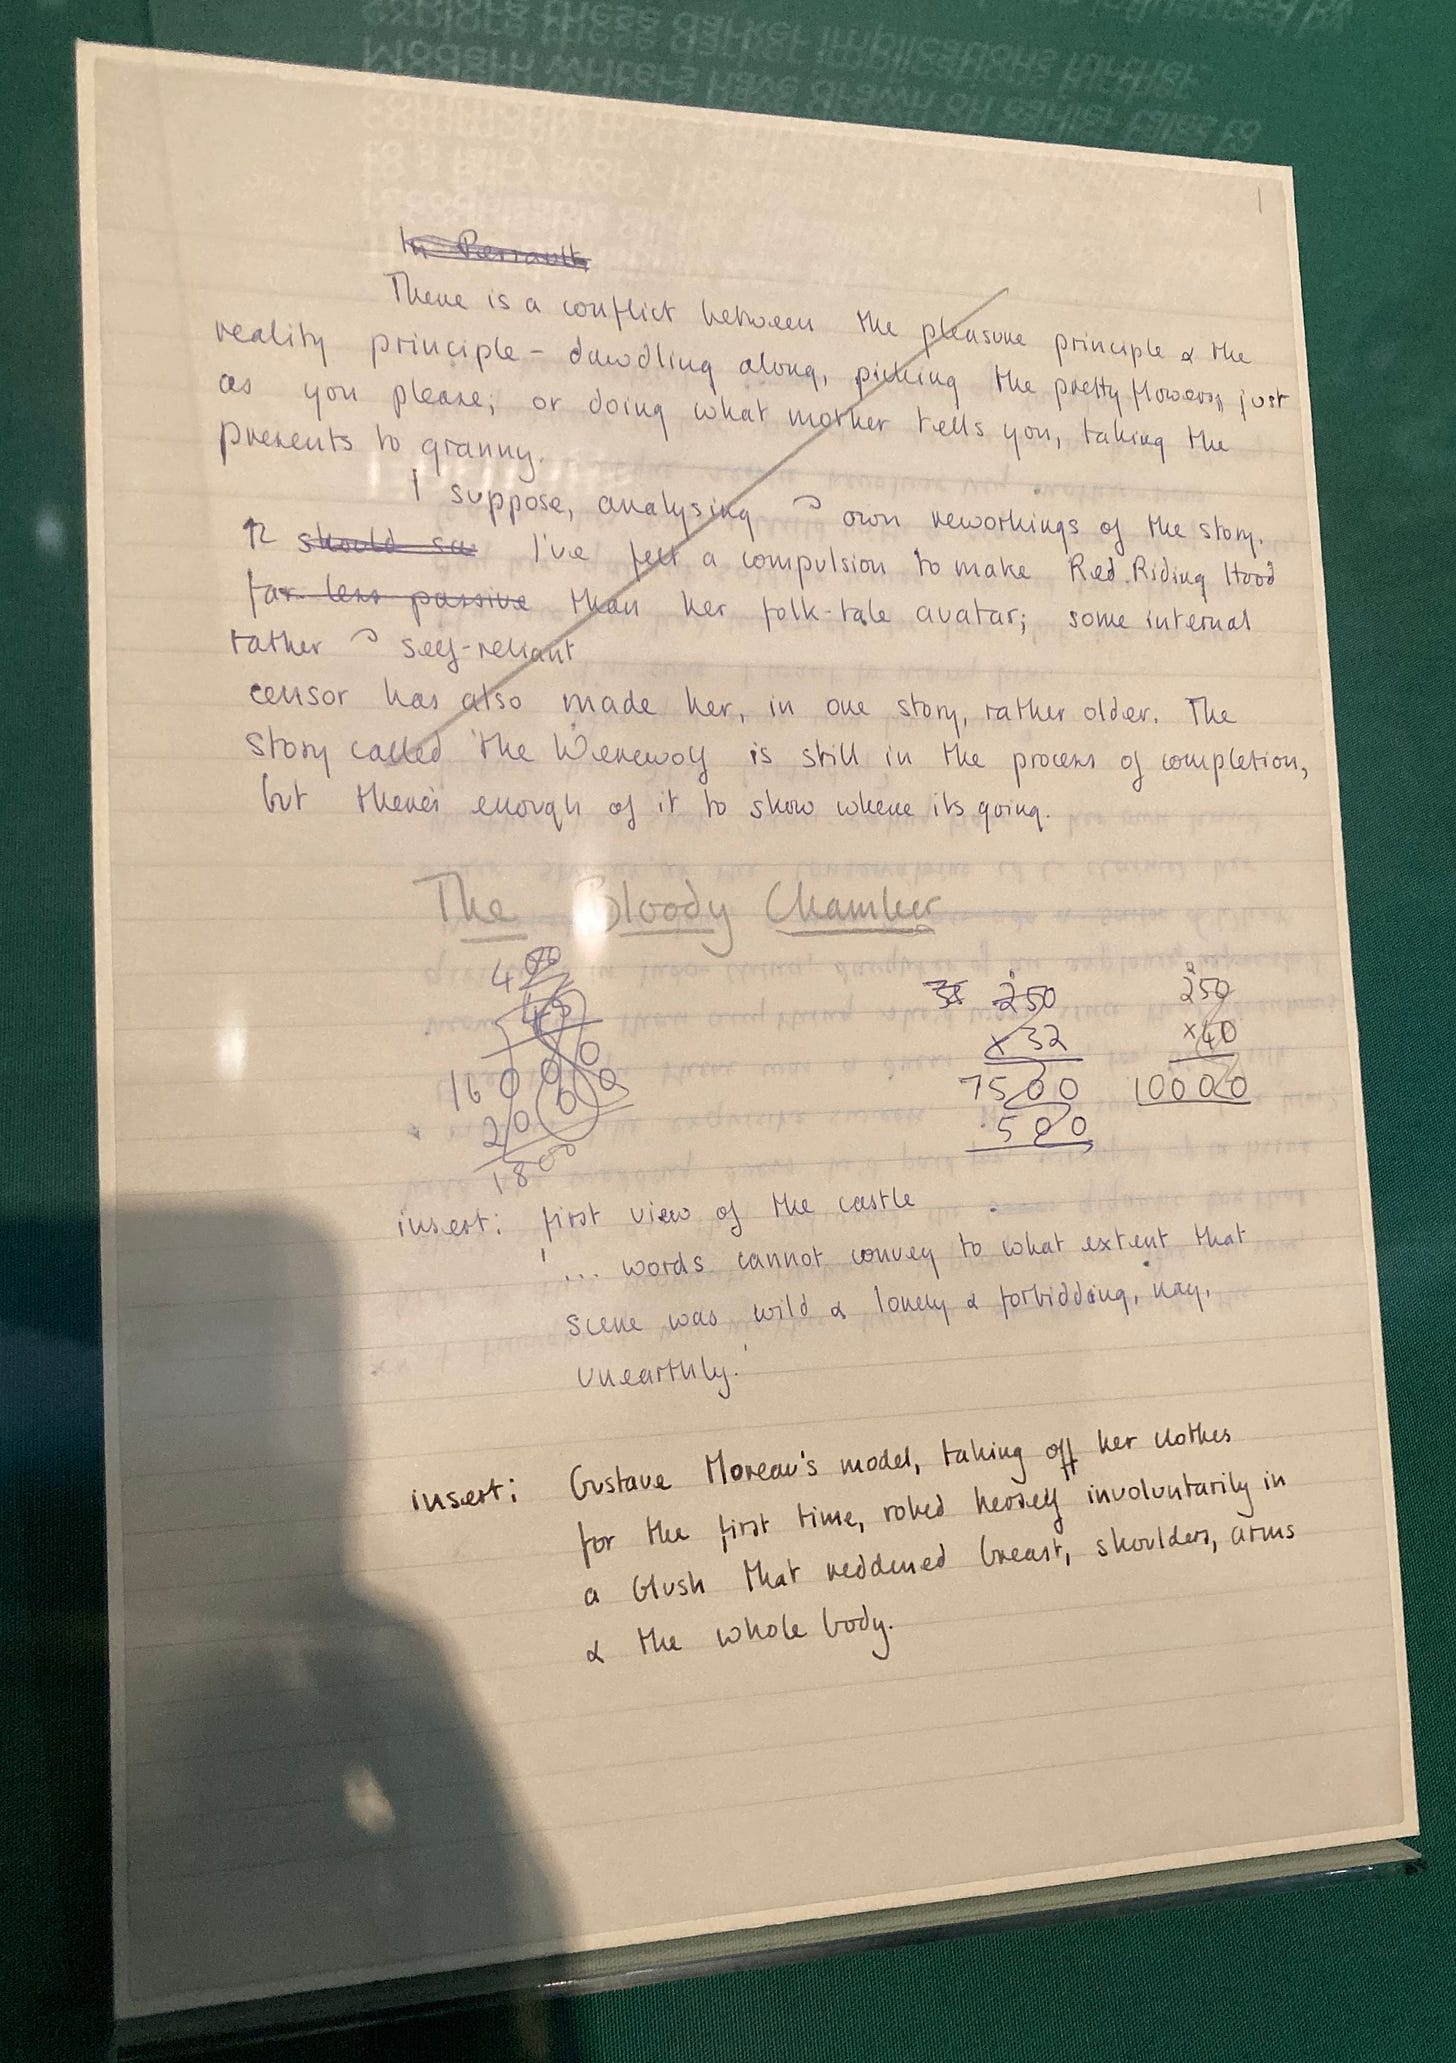 1
In Perrault
There is a conflict between the pleasure principle & the
reality principle - dawdling along, picking the pretty flowers, just
as you please; or doing what mother tells you, taking the
presents to granny.
I suppose, analysing own reworkings of the story.
should sa I've felt a compulsion to make Red Riding Hood
far less passive than her folk-tale avatar; some internal
rather self-reliant
censor has also made her, in one story, rather older. The
story called 'The Werewolf is still in the process of completion,
but there's enough of it to show where its going.
The Bloody Chamber
250 250
x 32 x 40
7500 10000
500
1800
insert: first view of the castle
'... words cannot convey to what extent that
scene was wild & lonely & forbidding, nay,
unearthly.'
insert: Gustave Moreau's model, taking off her clothes
for the first time, robed herself involuntarily in
a blush that reddened breast, shoulders, arms
& the whole body.